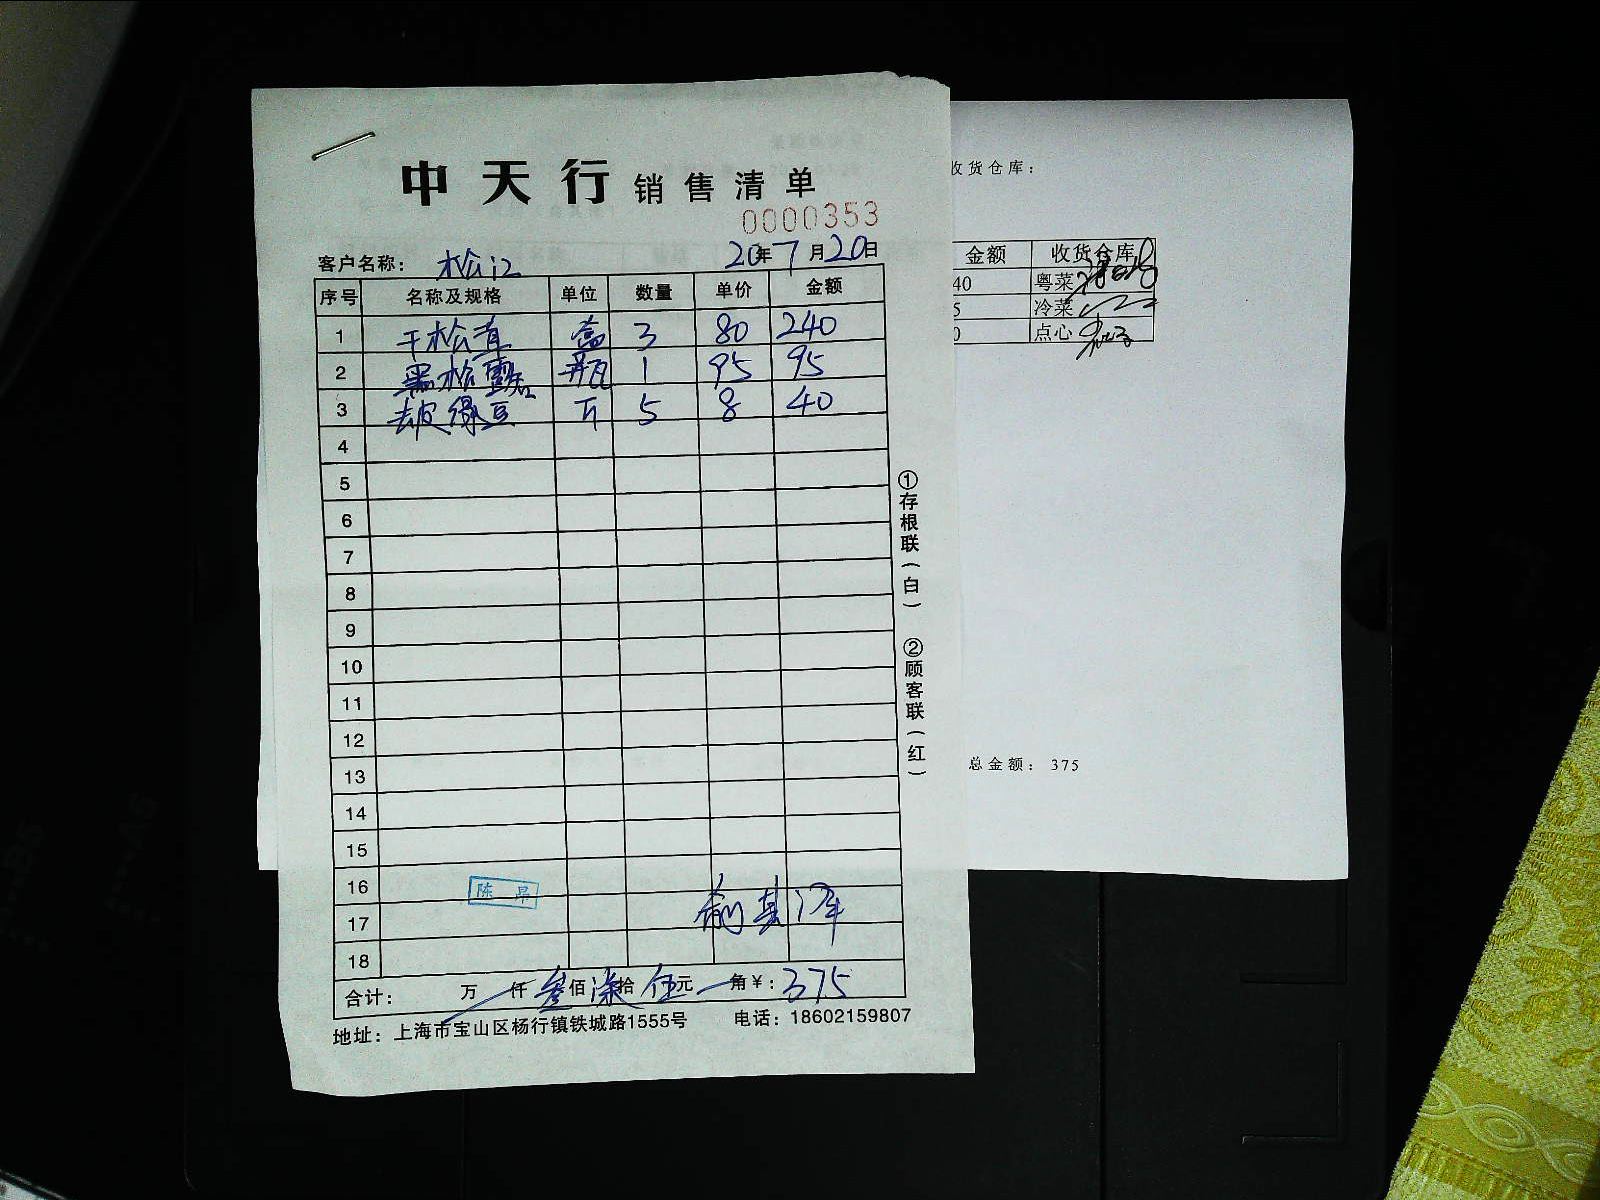 中天行 销售清单
0000353
客户名称： 松江 20年7月20日
序号 名称及规格 单位 数量 单价 金额
1 干松茸 盒 3 80 240
2 黑松露 瓶 1 95 95
3 去皮绿豆 斤 5 8 40
4
5
6
7
8
9
10
11
12
13
14
15
16
17
18
陈昂
合计： 万 仟 叁佰柒拾伍元 角￥：375
地址：上海市宝山区杨行镇铁城路1555号 电话：18602159807
①存根联（白） ②顾客联（红）
收货仓库：
金额 收货仓库
40 粤菜
5 冷菜
0 点心
总金额：375